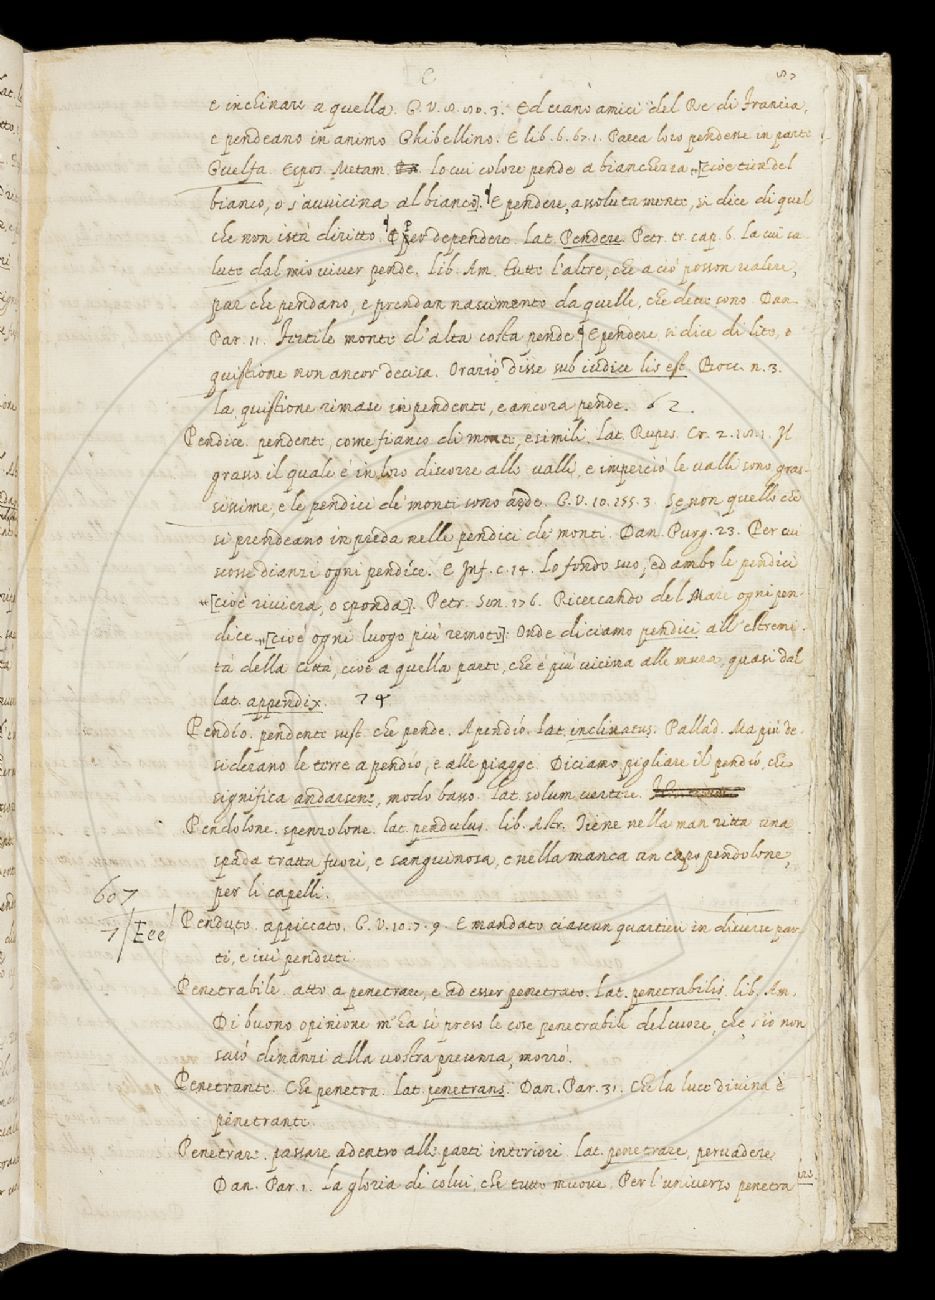 e inclinare a quella. G. V. 8. 3. Ed erano amici del Re di Francia,
e pendeano in animo Ghibellino. E lib. 6. 67. 1. Parea loro pendere in parte
Guelfa. Espos. Metam. lo cui colore pende a bianchezza [cioè tira del
bianco, o s'avvicina al bianco]. E pendere, assolutamente, si dice di quel
che non istà diritto. Per dependere. Lat. Pendere. Petr. tr. cap. 6. La cui sa-
lute dal mio viver pende. lib. Am. Tutte l'altre, che a ciò posson valere,
par che pendano, e prendan nascimento da quelle, che dette sono. Dan.
Par. 11. Fertile monte d'alta costa pende. E pendere si dice di lite, o
quistione non ancor decisa. Orazio disse sub iudice lis est. Bocc. n. 3.
La quistione rimase in pendente, e ancora pende. 62.
Pendice. pendente, come fianco di monte, e simili. Lat. Rupes. Cr. 2. Il
grasso il quale è in loro discorre alle valli, e imperciò le valli sono gras-
sissime, e le pendici de' monti sono aride. G. V. 10. 255. 3. Se non quello che
si prendeano in preda nelle pendici de' monti. Dan. Purg. 23. Per cui
scosse dianzi ogni pendice. E Inf. c. 14. Lo fondo suo, ed ambo le pendici
[cioè riviera, o sponda]. Petr. Son. 176. Ricercando del Mare ogni pen-
dice [cioè ogni luogo più remoto]. Onde diciamo pendici all'estremi-
tà della Città, cioè a quella parte, che è più vicina alle mura, quasi dal
lat. appendix. 74
Pendío. pendente sust. che pende. A pendío. lat. inclinatus. Pallad. Ma più de-
siderano le terre a pendío, e alle piagge. Diciamo pigliare il pendío, che
significa andarsene, modo basso. lat. solum vertere.
Pendolone. spenzolone. lat. pendulus. lib. Astr. Tiene nella man ritta una
spada tratta fuori, e sanguinosa, e nella manca un capo pendolone,
per li capelli.
607
7/Eee
Penduto. appiccato. G. V. 10. 7. 9. E mandato ciascun quartieri in diverse par-
ti, e ivi penduti.
Penetrabile. atto a penetrare, e ad esser penetrato. Lat. penetrabilis. lib. Am.
Di buono opinione m'ha sì preso le cose penetrabile del cuore, che, s'io non
sarò dinanzi alla vostra presenza, morrò.
Penetrante. Che penetra. lat. penetrans. Dan. Par. 31. Che la luce divina è
penetrante.
Penetrare. passare adentro alle parti interiori. Lat. penetrare, pervadere.
Dan. Par. 1. La gloria di colui, che tutto muove, Per l'universo penetra